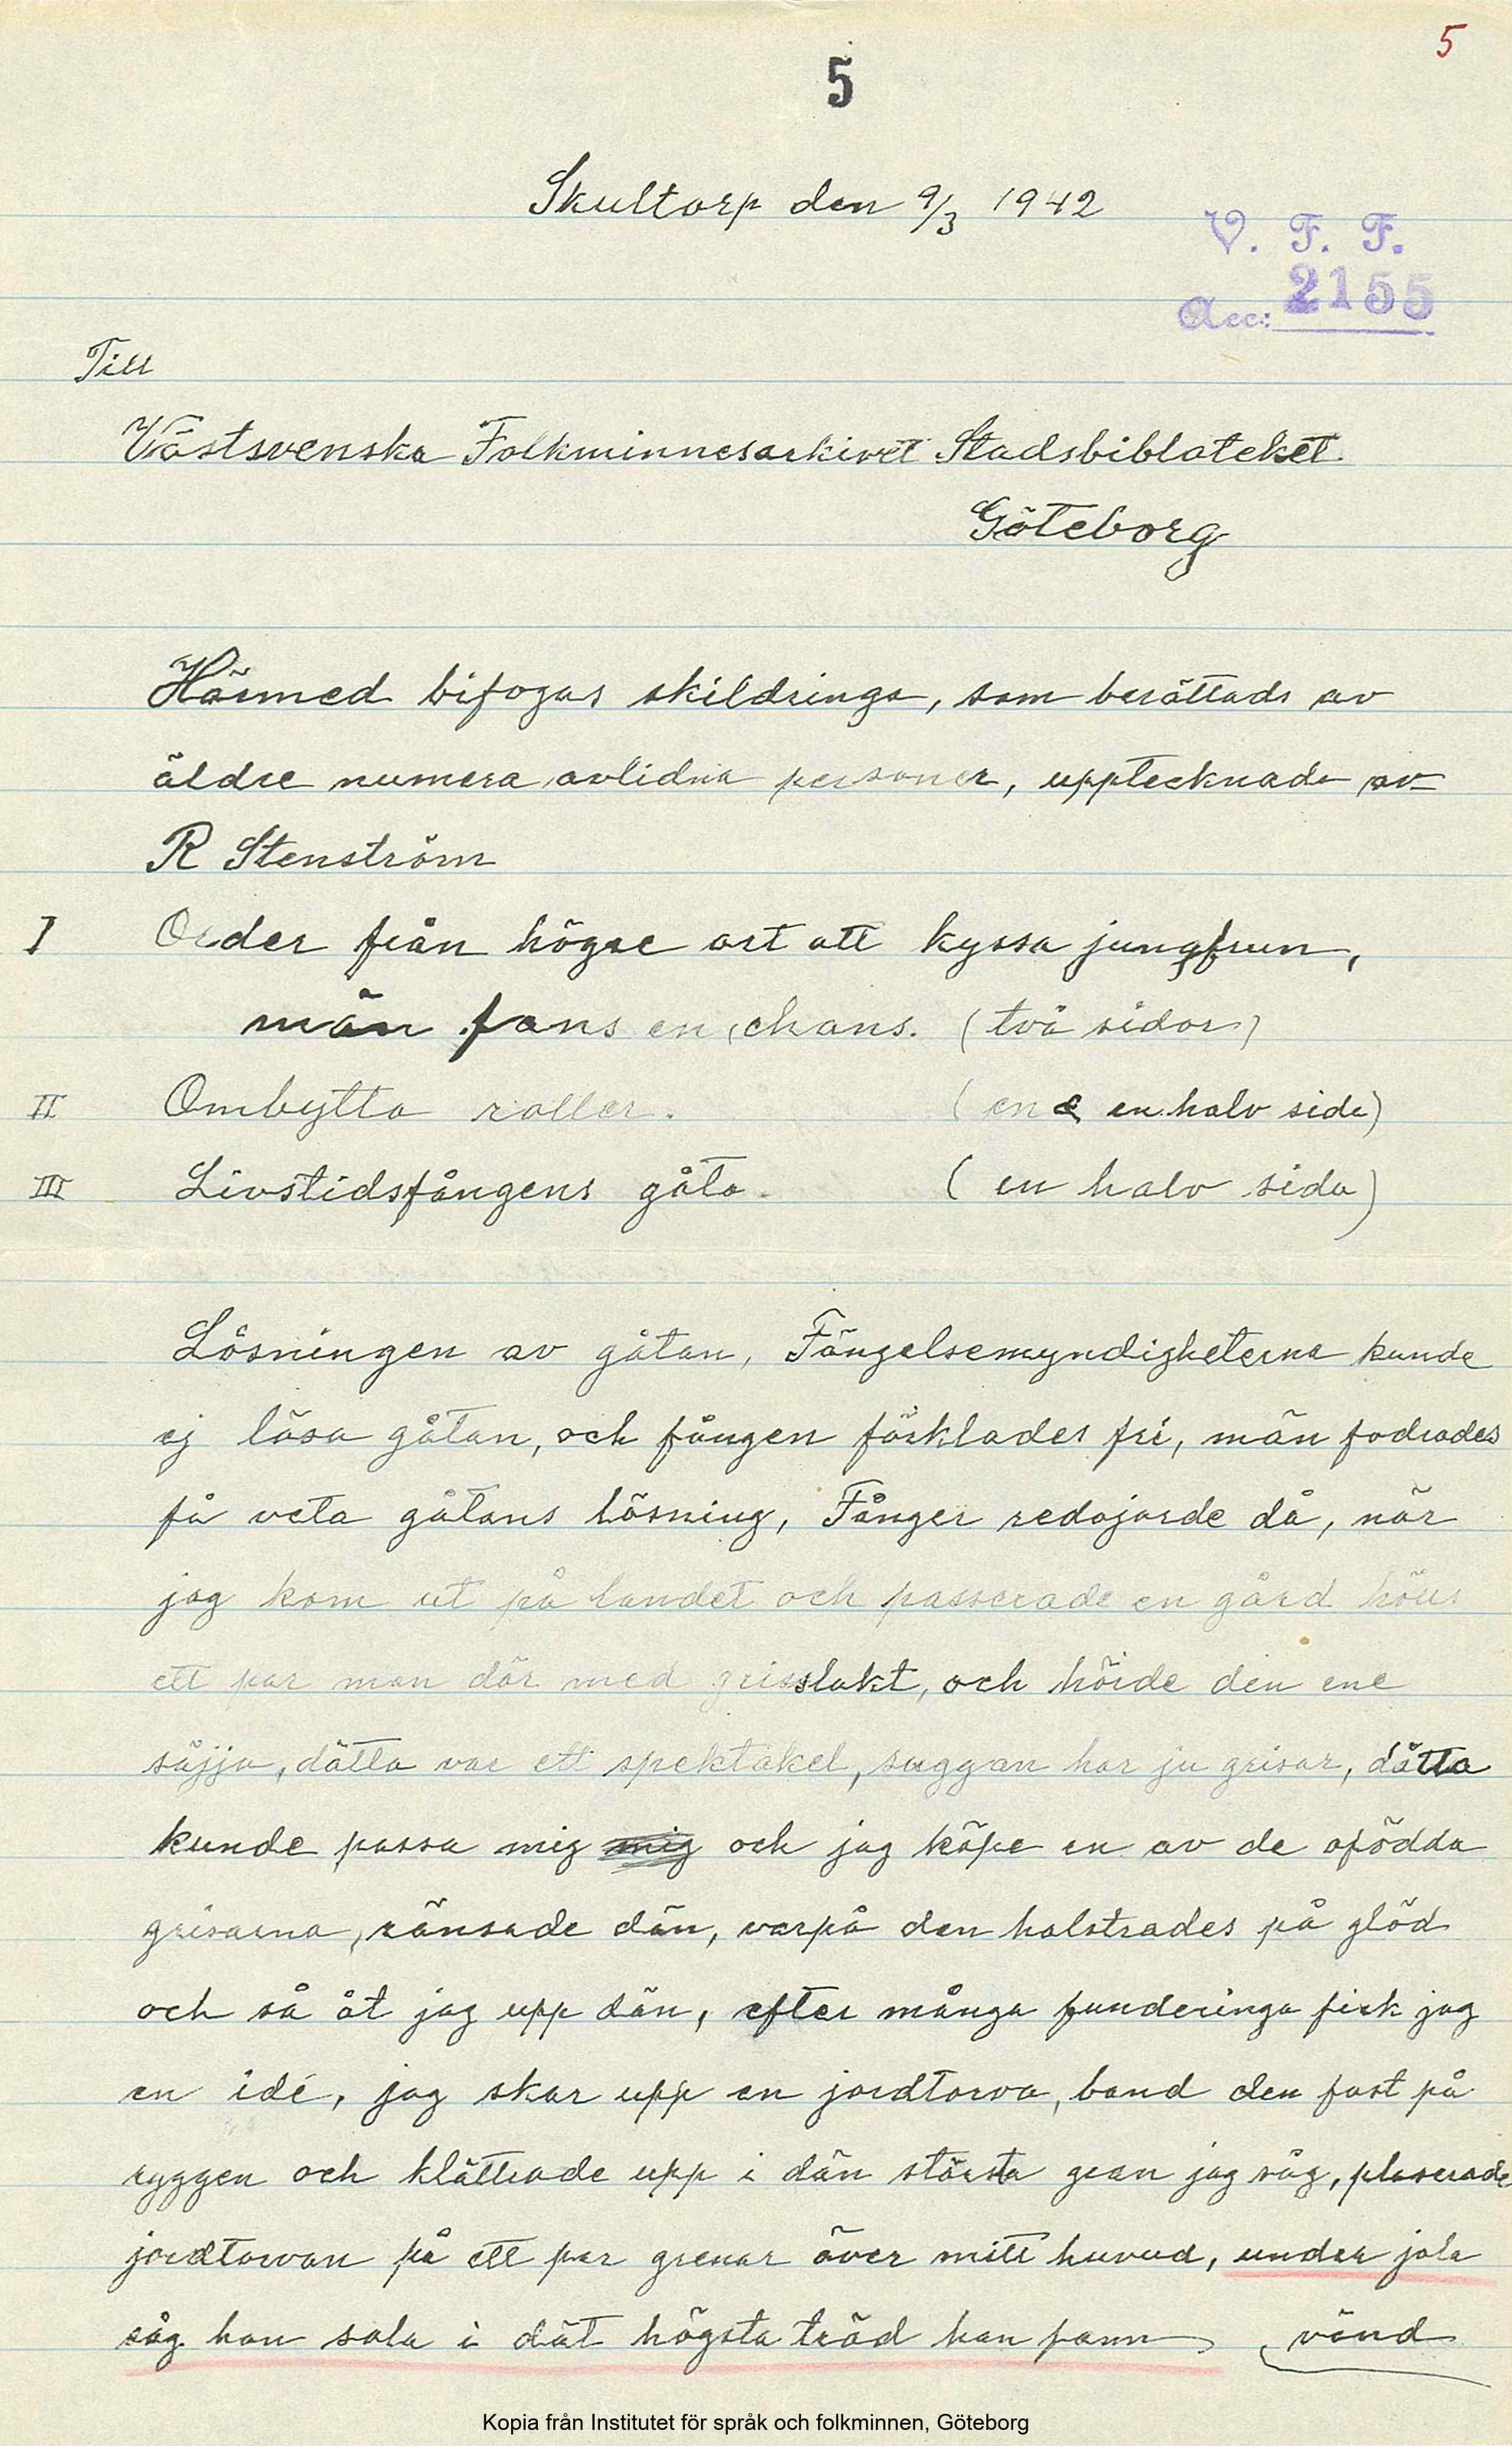 5
5
Skultorp den 9/3 1942
V. F. F.
Acc: 2155
Till
Västsvenska Folkminnesarkivet Stadsbiblateket
Göteborg
Härmed bifogas skildringa, som berättads av
äldre numera avlidna personer, upptecknade av
R Stenström
I Order från högre ort att kyssa jungfrun,
män fans en chans. (två sidor)
II Ombytta roller. (en & en halv sida)
III Livstidsfångens gåta. (en halv sida)
Lösningen av gåtan, Fängelsemyndigheterna kunde
ej lösa gåtan, och fången förklades fri, män fodrades
få veta gåtans lösning, Fånger redojorde då, när
jag kom ut på landet och passerade en gård höus
ett par man där med grisslakt, och hörde den ene
säjja, dätta var ett spektakel, suggan har ju grisar, dätta
kunde passa mig mig och jag köpe en av de ofödda
grisarna, ränsade dän, varpå den halstrades på glöd
och så åt jag upp dän, efter många funderinga fick jag
en idé, jag skar upp en jordtorva, band den fast på
ryggen och klättrade upp i dän största gran jag såg, plaserade
jordtorvan på ett par grenar över mitt huvud, under jola
såg han sola i dät högsta träd han fann vänd
Kopia från Institutet för språk och folkminnen, Göteborg